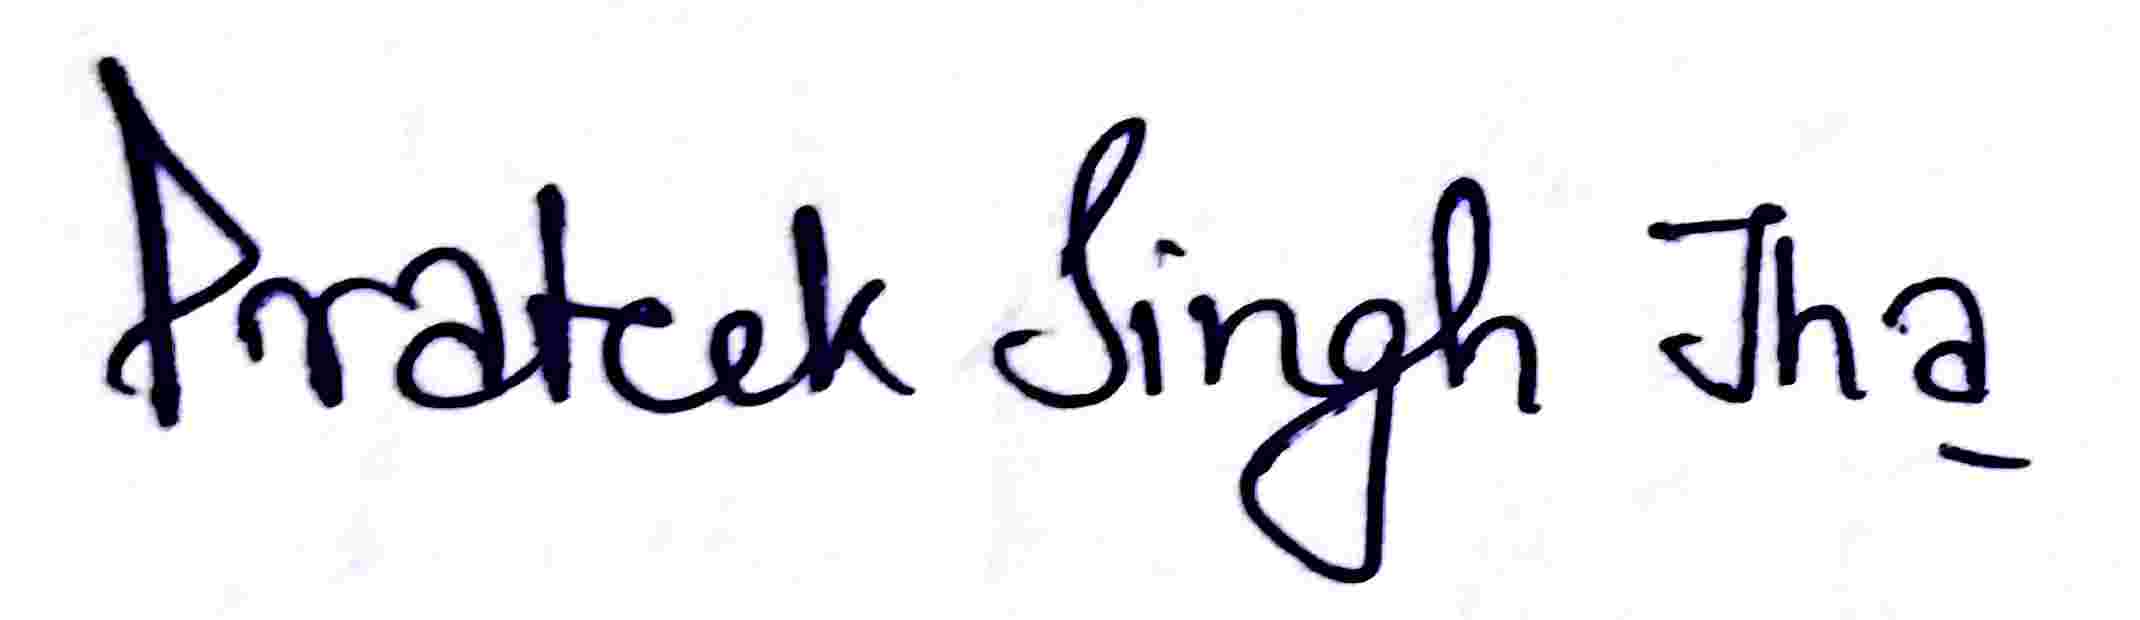 Prateek Singh Jha